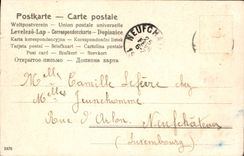 Postkarte — Carte postale
Weltpostverein — Union postale universelle
Levelező-Lap — Correspondenzkarte — Dopisnice
Karta korespondencyjna — Korespondenční lístek
Tarjeta postal — Briefkaart — Cartolina postale
Post card — Brefkort — Brevkort
Открытое письмо — Дописна карта
NEUFCH
Melles Camille Lefèvre chez
Mr Jeunehomme
Rue d'Arlon,
Neufchâteau
(Luxembourg)